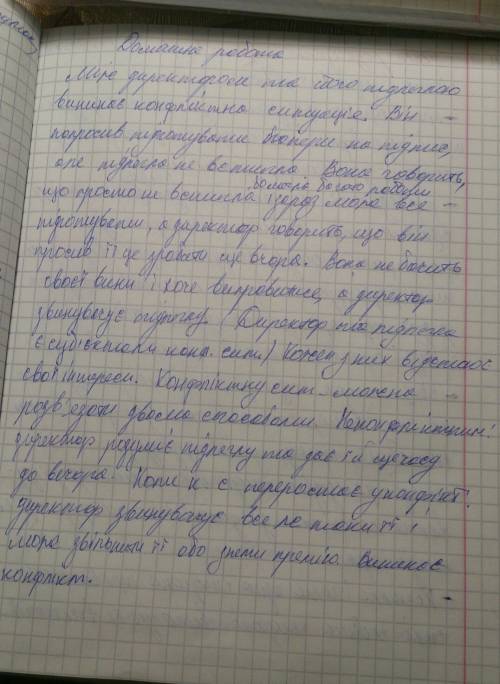 Домашня робота
Між директором та його підлеглою
виникає конфліктна ситуація. Він
попросив підготувати папери на підпис,
але підлегла не встигла. Вона говорить,
що просто не встигла багато роботи
і зараз може все
підготувати, а директор говорить, що він
просив її це зробити ще вчора. Вона не бачить
своєї вини і хоче виправитися, а директор
звинувачує підлеглу. (Директор та підлегла
є суб'єктами конф. сит.) Кожен з них відстоює
свої інтереси. Конфліктну сит. можна
розв'язати двома способами.
директор розуміє підлеглу та дає їй ще час
до вечора. Коли к. с. переростає у конфлікт:
директор звинувачує все таки її і
може звільнити її або зняти премію. Виникає
конфлікт.